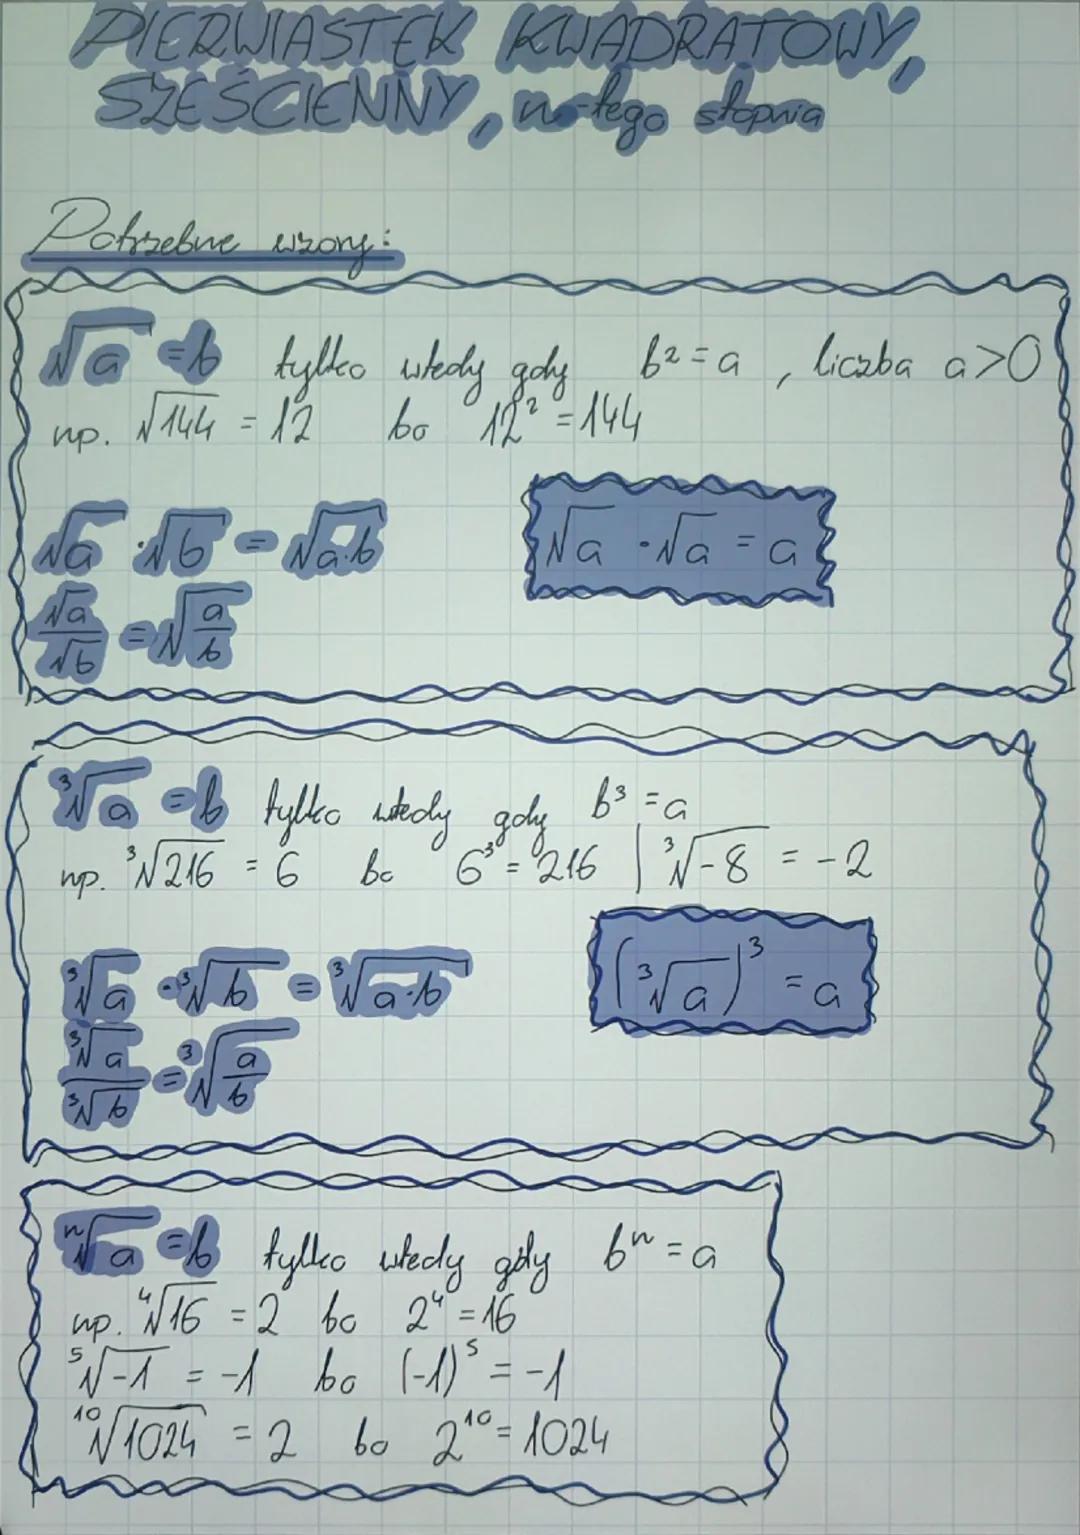 PIERWIASTEK KWADRATOWY,
SZEŚCIENNY, n-tego stopnia
Potrzebne wzory:
√a = b tylko wtedy gdy b² = a , liczba a>0
np. √144 = 12 bo 12² = 144
√a · √b = √a·b
√a · √a = a
√a/√b = √(a/b)
³√a = b tylko wtedy gdy b³ = a
np. ³√216 = 6 bo 6³ = 216 | ³√-8 = -2
³√a · ³√b = ³√a·b
(³√a)³ = a
³√a/³√b = ³√(a/b)
ⁿ√a = b tylko wtedy gdy bⁿ = a
np. ⁴√16 = 2 bo 2⁴ = 16
⁵√-1 = -1 bo (-1)⁵ = -1
¹⁰√1024 = 2 bo 2¹⁰ = 1024